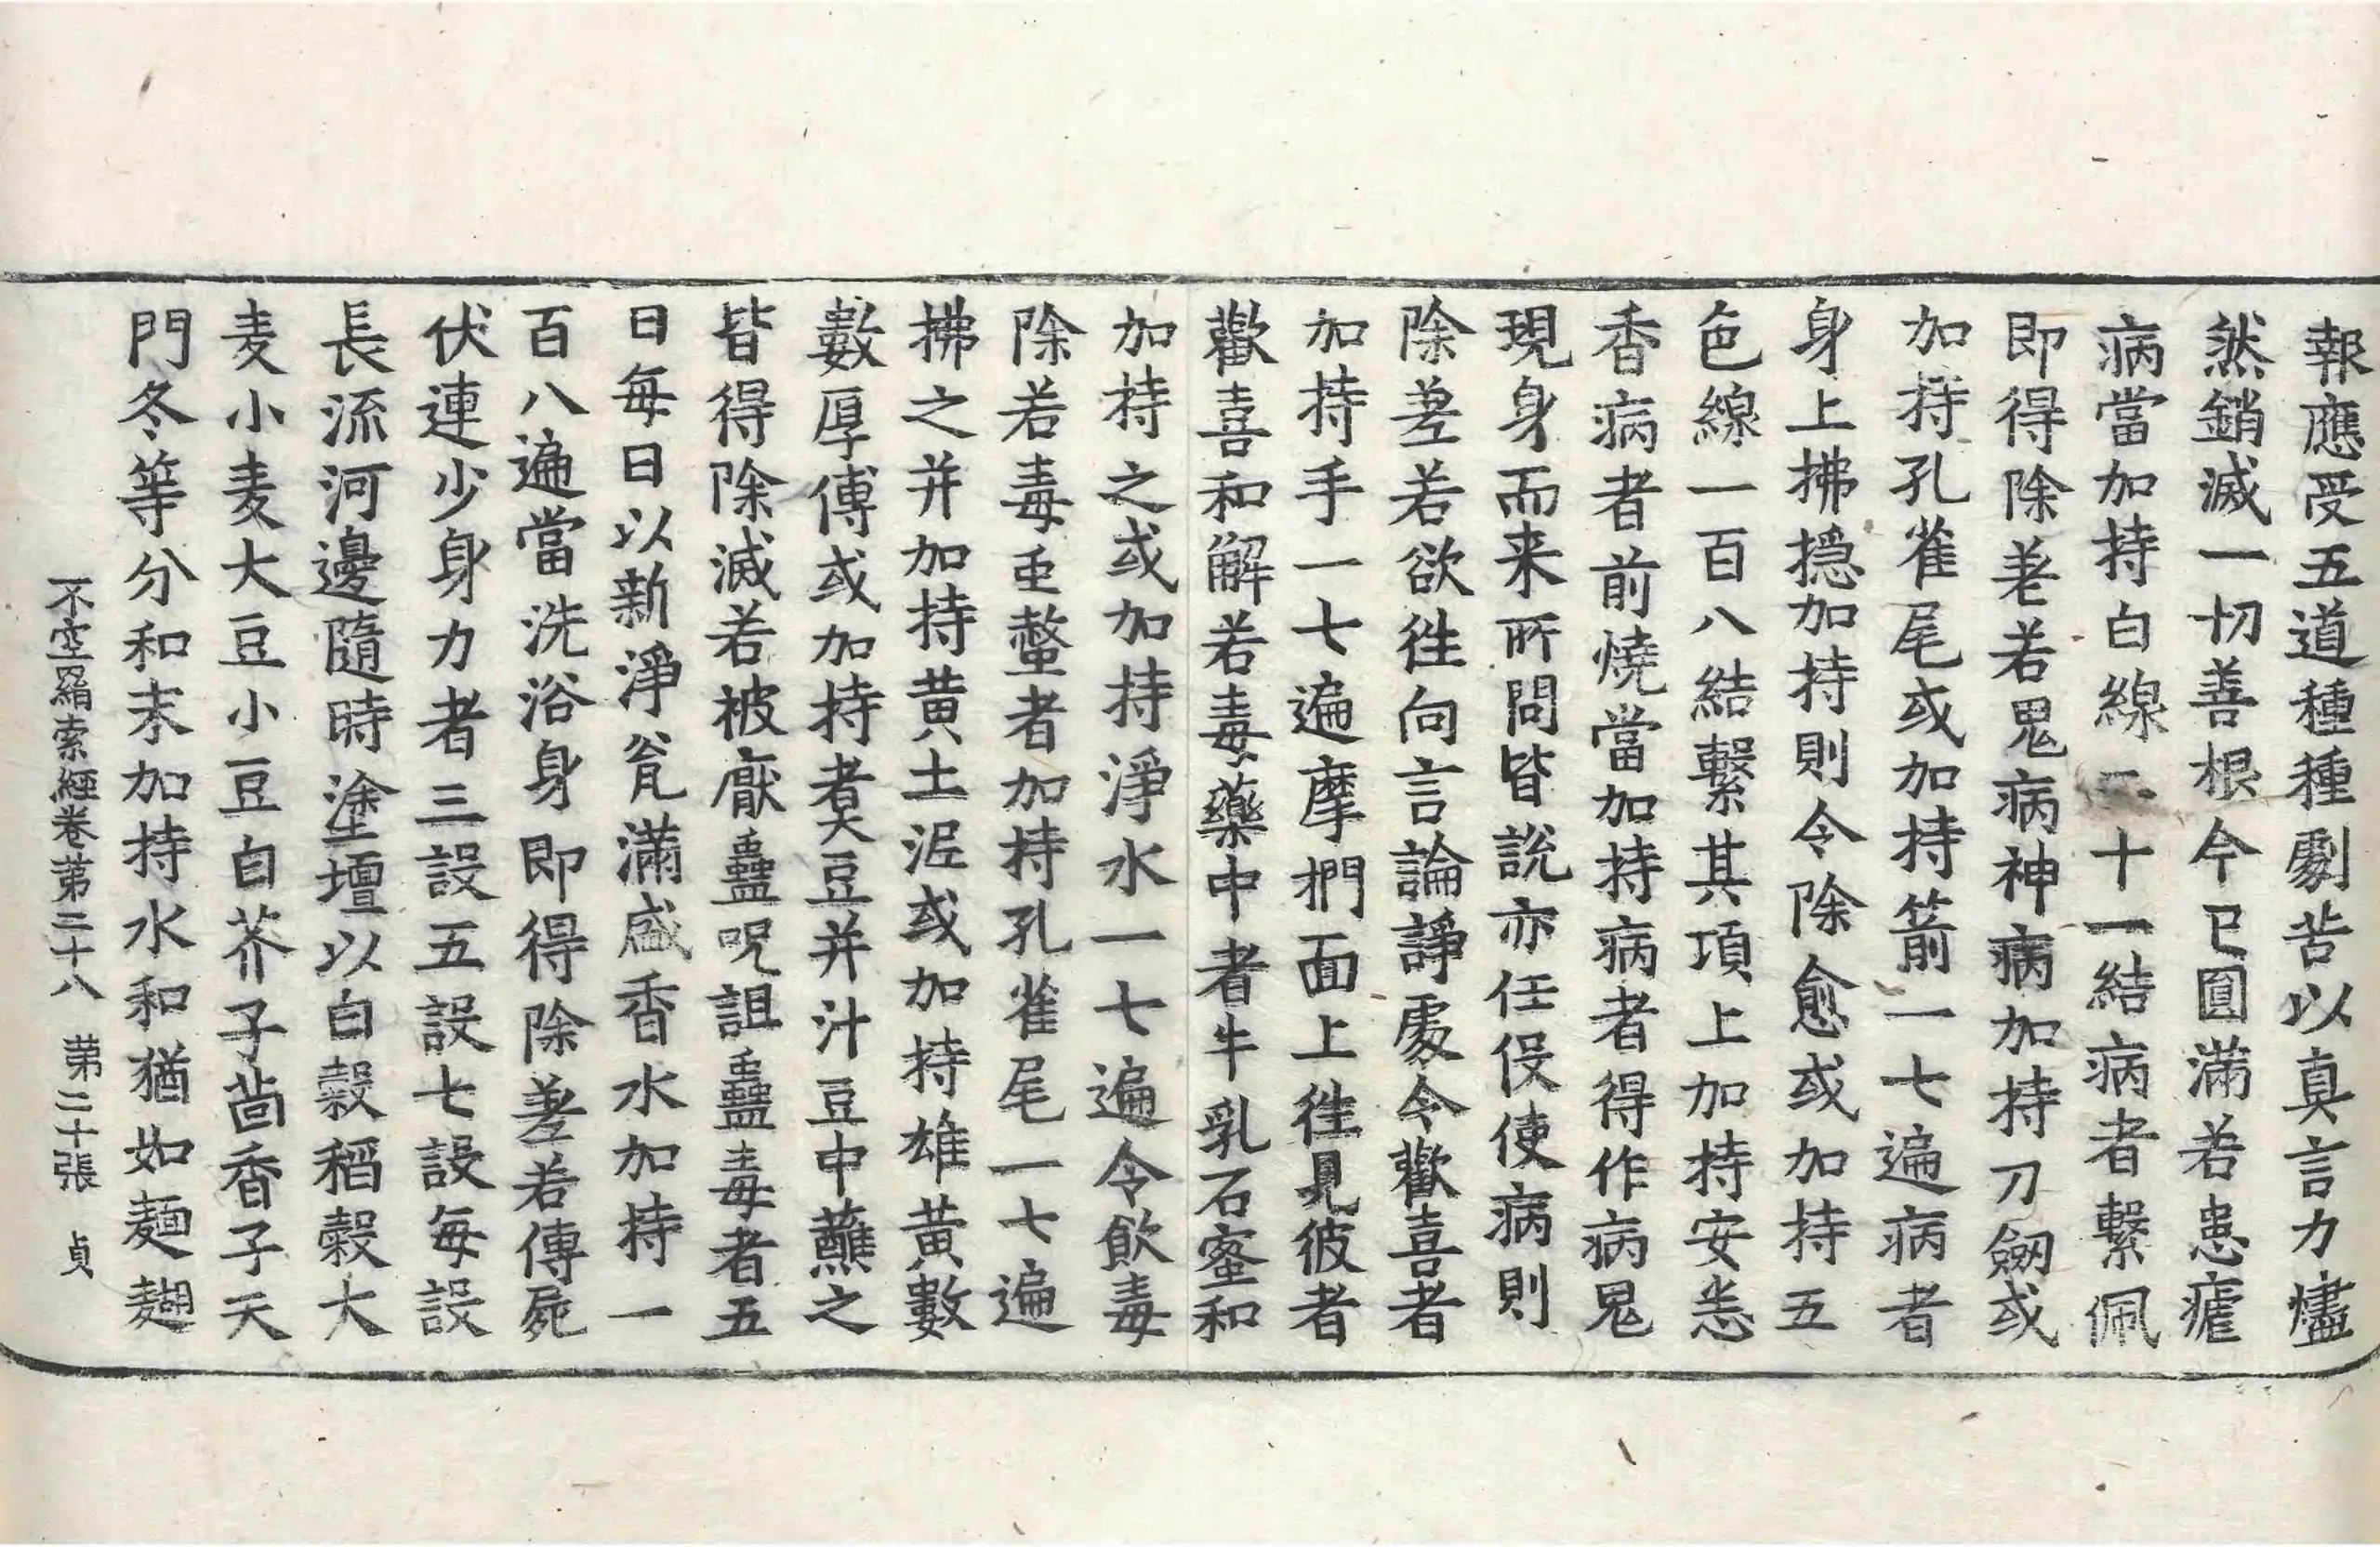 報應受五道種種劇苦以真言力燼
然銷滅一切善根今已圓滿若患瘧
病當加持白線二十一結病者繫佩
即得除差若鬼病神病加持刀劒或
加持孔雀尾或加持箭一七遍病者
身上拂摁加持則令除愈或加持五
色線一百八結繫其項上加持安悉
香病者前燒當加持病者得作病鬼
現身而来所問皆說亦任伇使病則
除差若欲往向言論諍處令歡喜者
加持手一七遍摩捫面上往見彼者
歡喜和解若毒藥中者牛乳石蜜和
加持之或加持淨水一七遍令飲毒
除若毒䖝螫者加持孔雀尾一七遍
拂之并加持黄土泥或加持雄黃數
數厚傅或加持煑豆并汁豆中蘸之
皆得除滅若被厭蠱呪詛蠱毒者五
日每日以新淨瓮滿盛香水加持一
百八遍當洗浴身即得除差若傳屍
伏連少身力者三設五設七設每設
長流河邊隨時塗壇以白糓稻糓大
麦小麦大豆小豆白芥子茴香子天
門冬等分和末加持水和猶如麺麹
不空羂索經卷苐二十八 苐二十張 貞